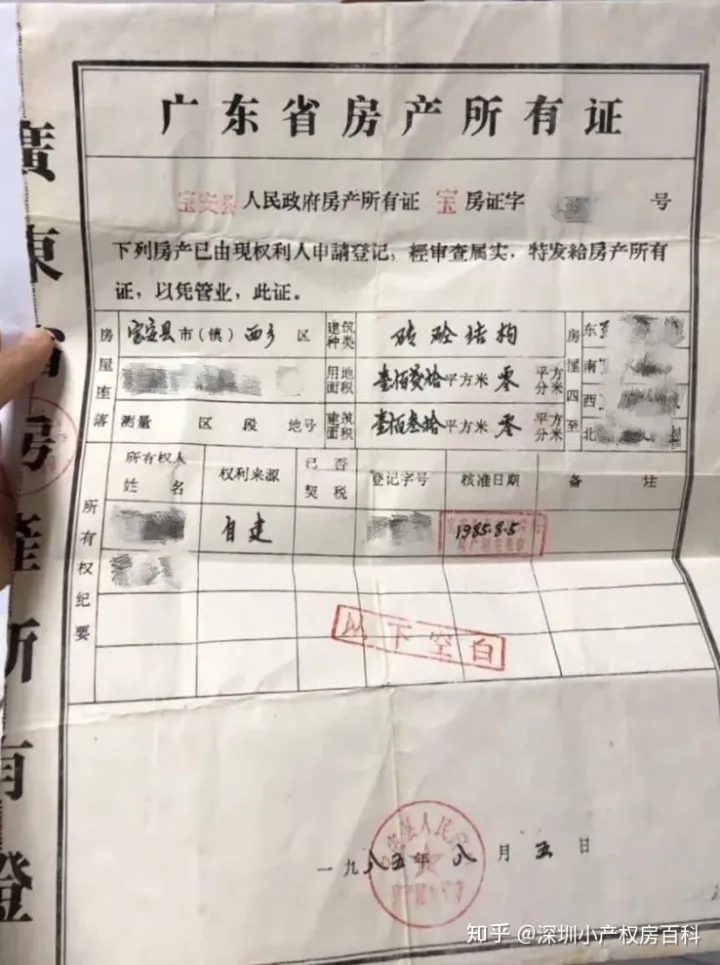 广东省房产所有证
宝安县人民政府房产所有证 宝 房证字 号
下列房产已由现权利人申請登记，經审查属实，特发給房产所有
证，以凭管业，此证。
房屋座落 宝安县市(镇)西乡 区 建筑种类 砖砼结构 房屋四至 东
用地面积 平方米 零 平方分米 南
西
测量 区 段 地号 建筑面积 壹佰叁拾平方米 零 平方分米 北
所有权纪要 所有权人姓名 权利来源 已否契税 登记字号 核准日期 备 注
自建 1985.8.5
以下空白
一九八五年八月五日
廣東省房產所有證
知乎 @深圳小产权房百科